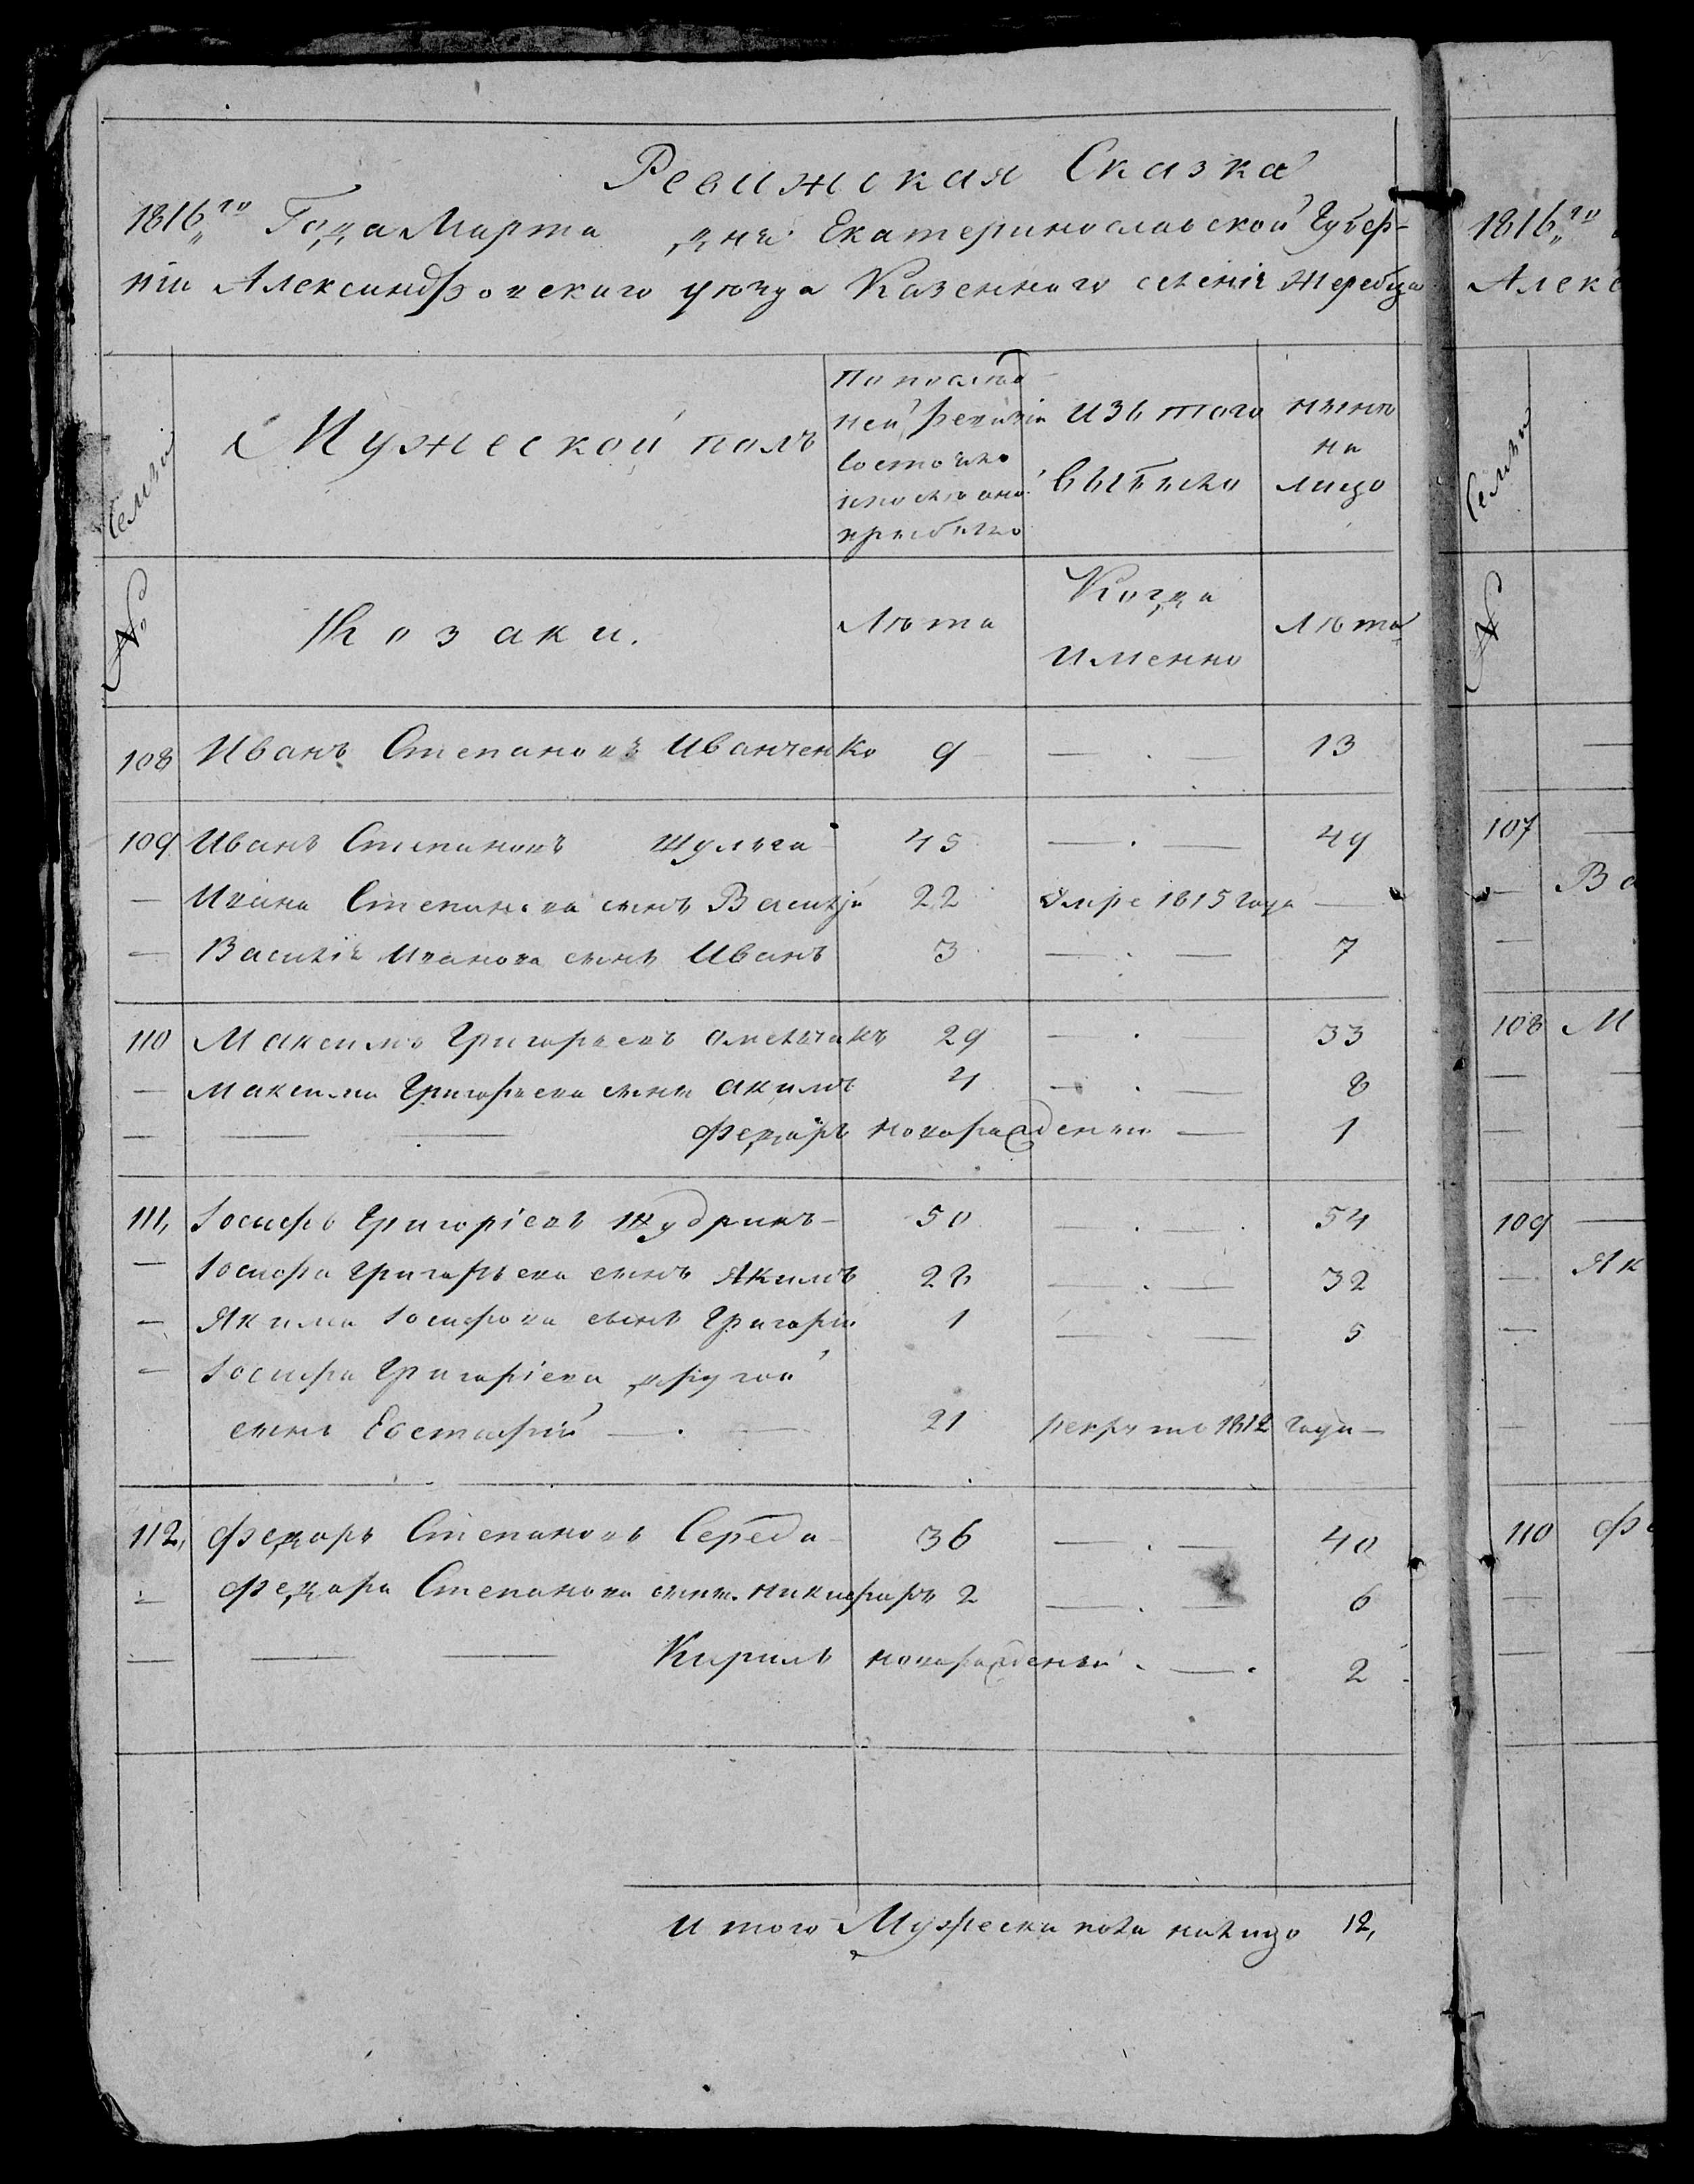 Ревижская Сказка
1816го Года Марта дня Екатеринославской Губер-
нии Александровскаго уезда Казеннаго селения Жеребца
Семьи
Мужеской полъ
По послед
ней ревизии
состояло
и после оной
прибыло
изъ того
выбыло
ныне
на
лицо
№
Козаки.
Лета
Когда
именно
Лета
108 Иванъ Степановъ Иванченко 9 — . — 13
109 Иванъ Степановъ Шульга 45 — . — 49
— Ивана Степанова сынъ Василий 22 Умре 1815 года —
— Василия Иванова сынъ Иванъ 3 — . — 7
110 Максимъ Григорьевъ Омельчакъ 29 — . — 33
— Максима Григорьева сынъ Акимъ 4 — . — 8
— — — Федоръ новорожденны — 1
111, Іосифъ Григоріевъ Шудринъ — 50 — . . 54
— Іосифа Григорьева сынъ Якимъ 28 — . — 32
— Якима Іосифова сынъ Григорій 1 — . — 5
— Іосифа Григоріева другой
сынъ Евстафий — . — 21 рекрутъ 1812 года —
112, Федоръ Степановъ Середа 36 — . — 40
— Федора Степанова сынъ Никифоръ 2 — . — 6
— — — Кирилъ новорожденый . — . 2
Итого Мужеска пола налицо 12,
1816го
Алекс
Семьи
№
—
107 —
— Ва
—
108 М
— —
— —
109 —
— Як
—
— —
110 Фе
—
— —